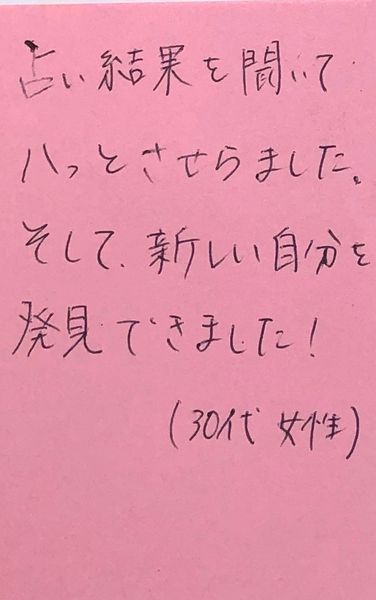 占い結果を聞いて
ハっとさせらました。
そして、新しい自分を
発見できました!
(30代 女性)